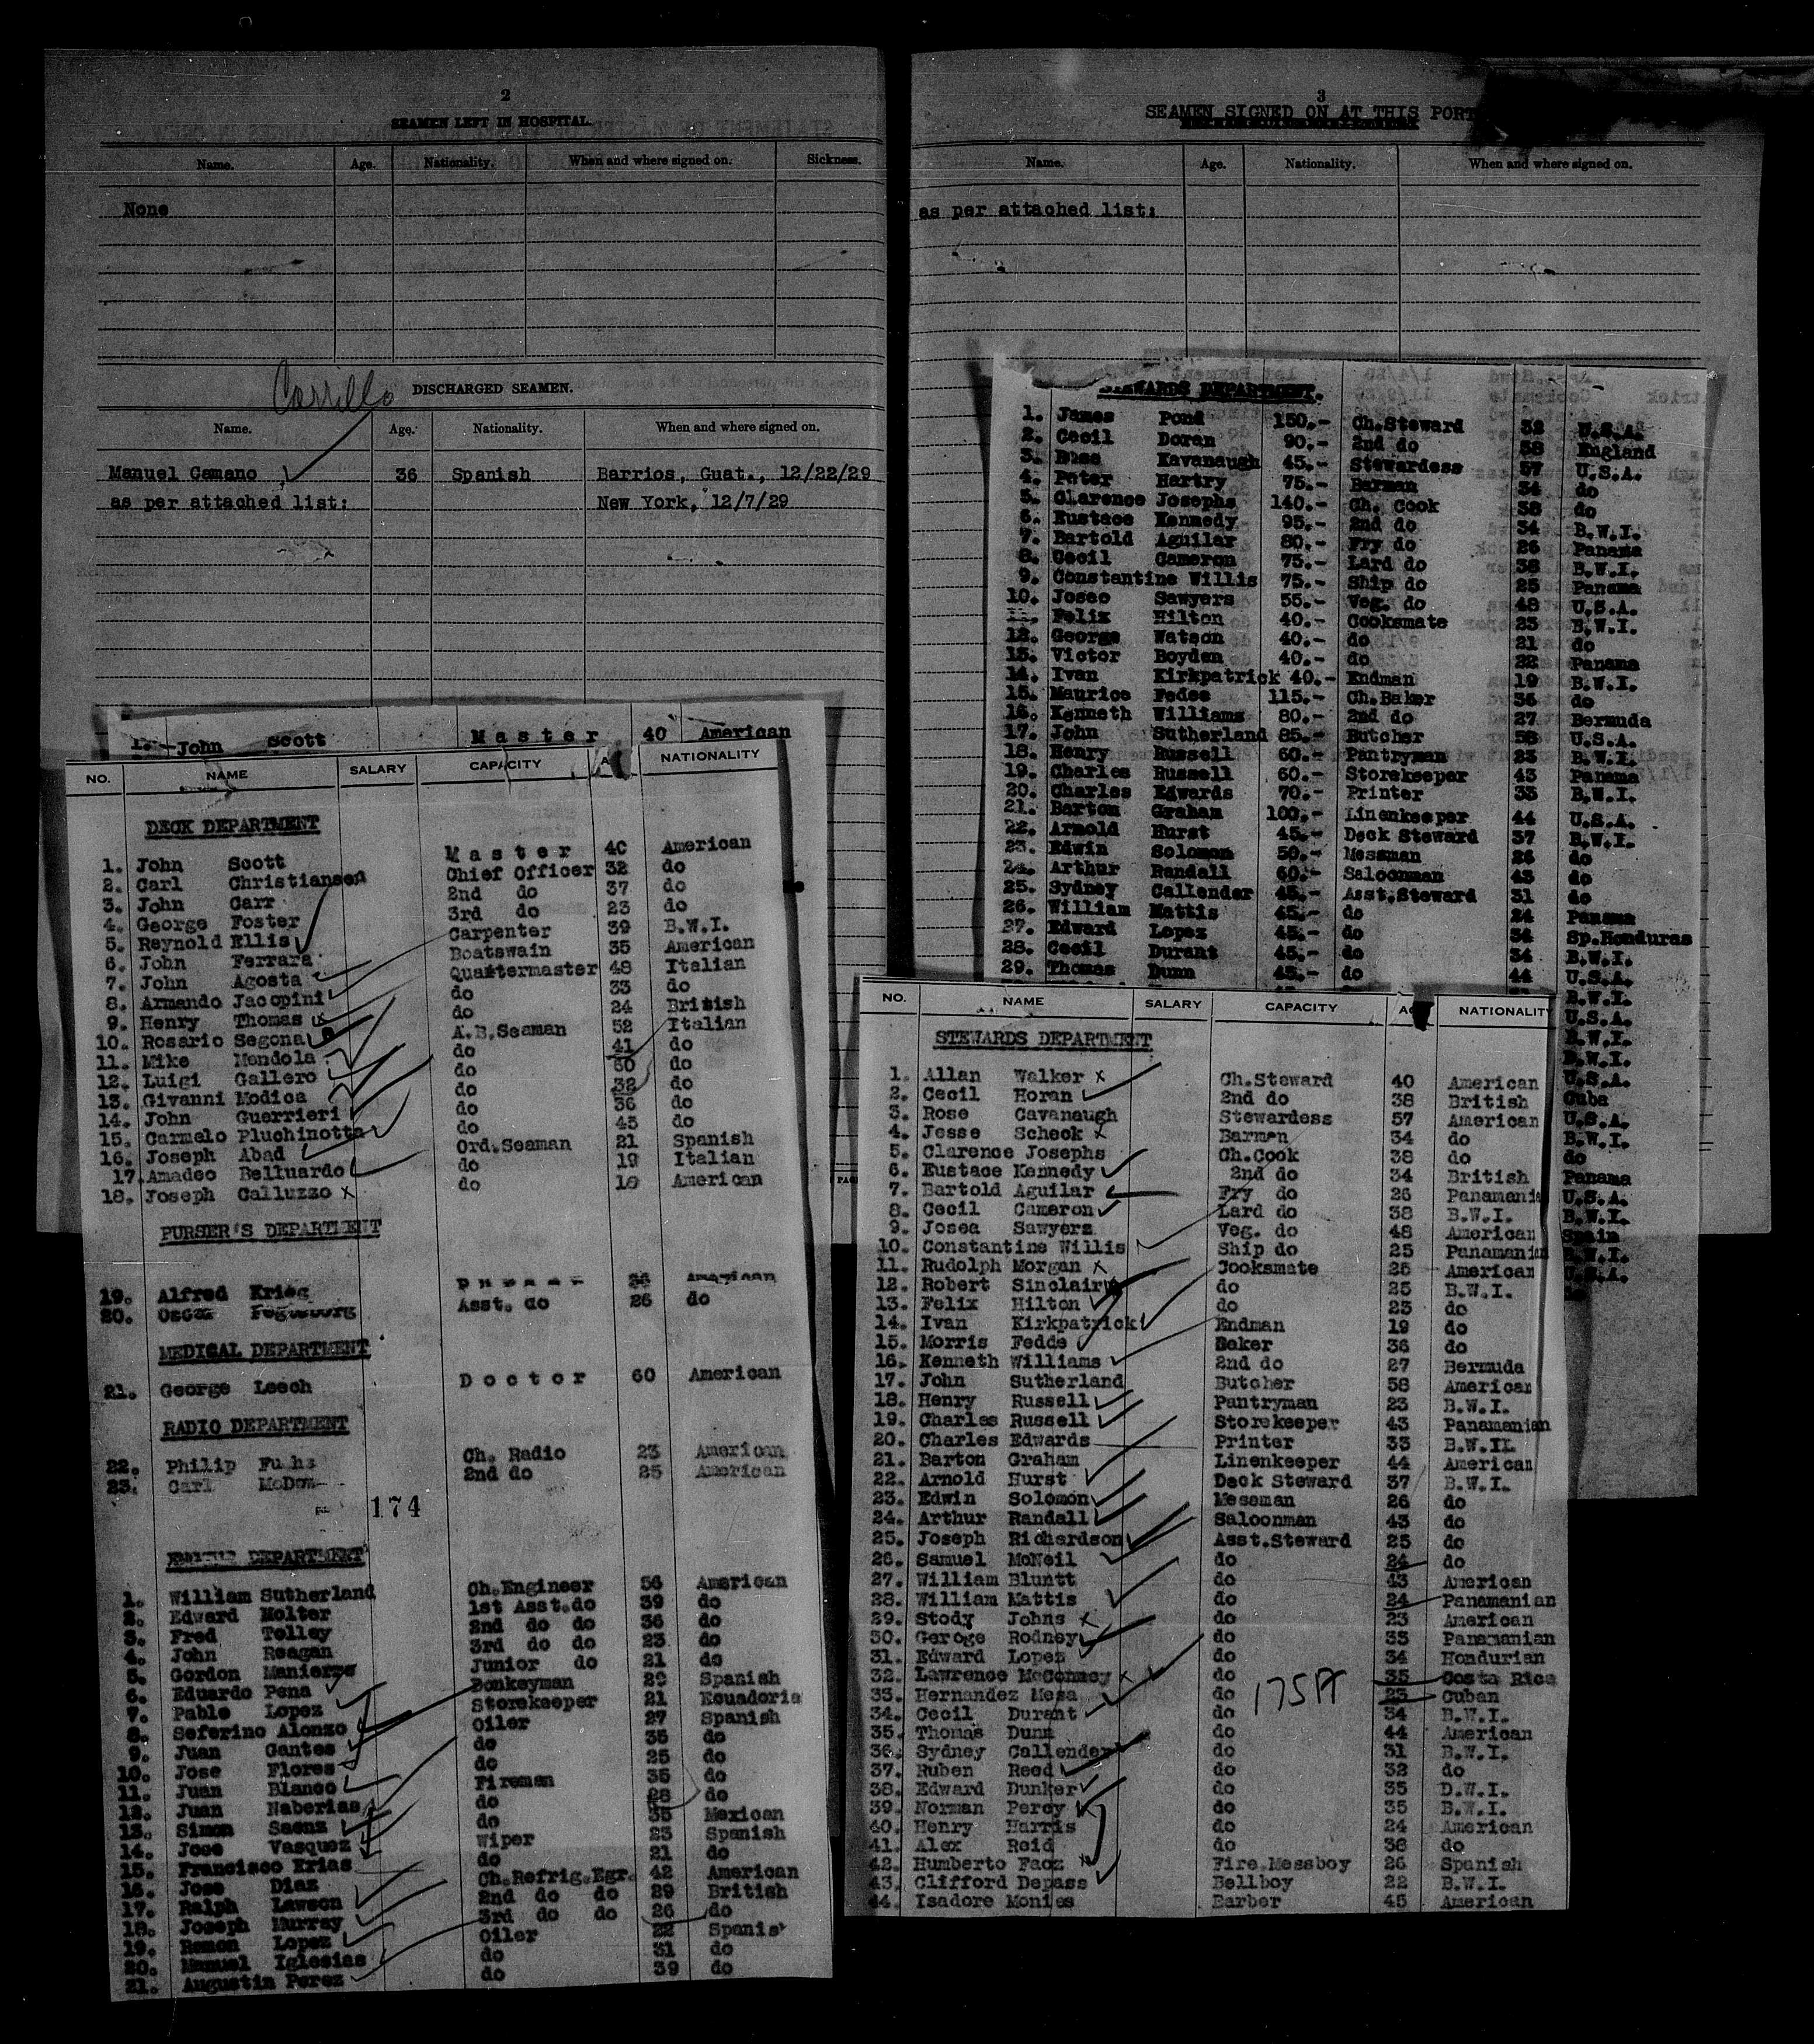 2
SEAMEN LEFT IN HOSPITAL.
Name. Age. Nationality. When and where signed on. Sickness.
None
Carrillo
DISCHARGED SEAMEN.
Name. Age. Nationality. When and where signed on.
Manuel Camano 36 Spanish Barrios, Guat., 12/22/29
as per attached list: New York, 12/7/29
1. John Scott Master 40 American
NO. NAME SALARY CAPACITY NATIONALITY
DECK DEPARTMENT
1. John Scott Master 40 American
2. Carl Christiansen Chief Officer 32 do
3. John Carr 2nd do 37 do
4. George Foster 3rd do 23 do
5. Reynold Ellis Carpenter 39 B.W.I.
6. John Ferrara Boatswain 35 American
7. John Agosta Quartermaster 48 Italian
8. Armando Jacopini do 33 do
9. Henry Thomas x do 24 British
10. Rosario Segona A.B.Seaman 52 Italian
11. Mike Mendola do 41 do
12. Luigi Gallero do 30 do
13. Givanni Modica do 32 do
14. John Guerrieri do 36 do
15. Carmelo Pluchinotta do 45 do
16. Joseph Abad Ord.Seaman 21 Spanish
17. Amadeo Belluardo do 19 Italian
18. Joseph Calluzzo x do 18 American
PURSER'S DEPARTMENT
19. Alfred Krieg 36 American
20. Oscar Asst. do 26 do
MEDICAL DEPARTMENT
21. George Leech Doctor 60 American
RADIO DEPARTMENT
22. Philip Fuchs Ch. Radio 23 American
23. Carl 2nd do 25 American
174
DEPARTMENT
1. William Sutherland Ch.Engineer 56 American
2. Edward Molter 1st Asst.do 39 do
3. Fred Tolley 2nd do do 36 do
4. John Reagan 3rd do do 23 do
5. Gordon Manierre Junior do 21 do
6. Eduardo Pena Donkeyman 29 Spanish
7. Pablo Lopez Storekeeper 21 Ecuadoria
8. Seferino Alonzo Oiler 27 Spanish
9. Juan Gantes do 35 do
10. Jose Flores do 25 do
11. Juan Blanco Fireman 35 do
12. Juan Naberias do 28 do
13. Simon Saenz do 35 Mexican
14. Jose Vasquez Wiper 23 Spanish
15. Francisco Erias do 21 do
16. Jose Diaz Ch.Refrig.Egr. 42 American
17. Ralph Lawson 2nd do do 29 British
18. Joseph Murray 3rd do do 26 do
19. Ramon Lopez Oiler 22 Spanis
20. Manuel Iglesias do 31 do
21. Augustin Perez do 39 do
3
SEAMEN SIGNED ON AT THIS PORT
Name. Age. Nationality. When and where signed on.
as per attached list:
STEWARDS DEPARTMENT.
1. James Pond 150.- Ch.Steward 32 U.S.A.
2. Cecil Doran 90.- 2nd do 38 England
3. Rose Kavanaugh 45.- Stewardess 57 U.S.A.
4. Peter Hartry 75.- Barman 34 do
5. Clarence Josephs 140.- Ch. Cook 38 do
6. Eustace Kennedy 95.- 2nd do 34 B.W.I.
7. Bartold Aguilar 80.- Fry do 26 Panama
8. Cecil Cameron 75.- Lard do 38 B.W.I.
9. Constantine Willis 75.- Ship do 25 Panama
10. Joseo Sawyers 55.- Veg. do 48 U.S.A.
11. Felix Hilton 40.- Cooksmate 23 B.W.I.
12. George Watson 40.- do 21 do
13. Victor Boyden 40.- do 22 Panama
14. Ivan Kirkpatrick 40.- Endman 19 B.W.I.
15. Maurice Fedee 115.- Ch.Baker 36 do
16. Kenneth Williams 80.- 2nd do 27 Bermuda
17. John Sutherland 85.- Butcher 58 U.S.A.
18. Henry Russell 60.- Pantryman 23 B.W.I.
19. Charles Russell 60.- Storekeeper 43 Panama
20. Charles Edwards 70.- Printer 33 B.W.I.
21. Barton Graham 100.- Linenkeeper 44 U.S.A.
22. Arnold Hurst 45.- Deck Steward 37 B.W.I.
23. Edwin Solomon 50.- Messman 26 do
24. Arthur Randall 60.- Saloonman 43 do
25. Sydney Callender 45.- Asst.Steward 31 do
26. William Mattis 45.- do 24 Panama
27. Edward Lopez 45.- do 34 Sp.Honduras
28. Cecil Durant 45.- do 34 B.W.I.
29. Thomas Dunn 45.- do 44 U.S.A.
B.W.I.
U.S.A.
B.W.I.
B.W.I.
U.S.A.
Cuba
U.S.A.
B.W.I.
do
Panama
U.S.A.
B.W.I.
Spain
B.W.I.
U.S.A.
NO. NAME SALARY CAPACITY NATIONALIT
STEWARDS DEPARTMENT
1. Allan Walker x Ch.Steward 40 American
2. Cecil Horan 2nd do 38 British
3. Rose Cavanaugh Stewardess 57 American
4. Jesse Scheck x Barman 34 do
5. Clarence Josephs Ch.Cook 38 do
6. Eustace Kennedy 2nd do 34 British
7. Bartold Aguilar Fry do 26 Panamania
8. Cecil Cameron Lard do 38 B.W.I.
9. Josea Sawyers Veg. do 48 American
10. Constantine Willis Ship do 25 Panamanian
11. Rudolph Morgan x Cooksmate 26 American
12. Robert Sinclair do 25 B.W.I.
13. Felix Hilton do 23 do
14. Ivan Kirkpatrick Endman 19 do
15. Morris Fedde Baker 36 do
16. Kenneth Williams 2nd do 27 Bermuda
17. John Sutherland Butcher 58 American
18. Henry Russell Pantryman 23 B.W.I.
19. Charles Russell Storekeeper 43 Panamanian
20. Charles Edwards Printer 33 B.W.II.
21. Barton Graham Linenkeeper 44 American
22. Arnold Hurst Deck Steward 37 B.W.I.
23. Edwin Solomon Messman 26 do
24. Arthur Randall Saloonman 43 do
25. Joseph Richardson Asst.Steward 25 do
26. Samuel McNeil do 24 do
27. William Bluntt do 43 American
28. William Mattis do 24 Panamanian
29. Stody Johns x do 23 American
30. Geroge Rodney do 33 Panamanian
31. Edward Lopez do 34 Hondurian
32. Lawrence McConney x do 35 Costa Rica
33. Hernandez Mesa do 23 Cuban
175A
34. Cecil Durant do 34 B.W.I.
35. Thomas Dunn do 44 American
36. Sydney Callender do 31 B.W.I.
37. Ruben Reed do 32 do
38. Edward Dunker do 35 D.W.I.
39. Norman Percy do 35 B.W.I.
40. Henry Harris do 24 American
41. Alex Reid do 36 do
42. Humberto Faoz x Fire.Messboy 26 Spanish
43. Clifford Depass Bellboy 22 B.W.I.
44. Isadore Monies Barber 45 American